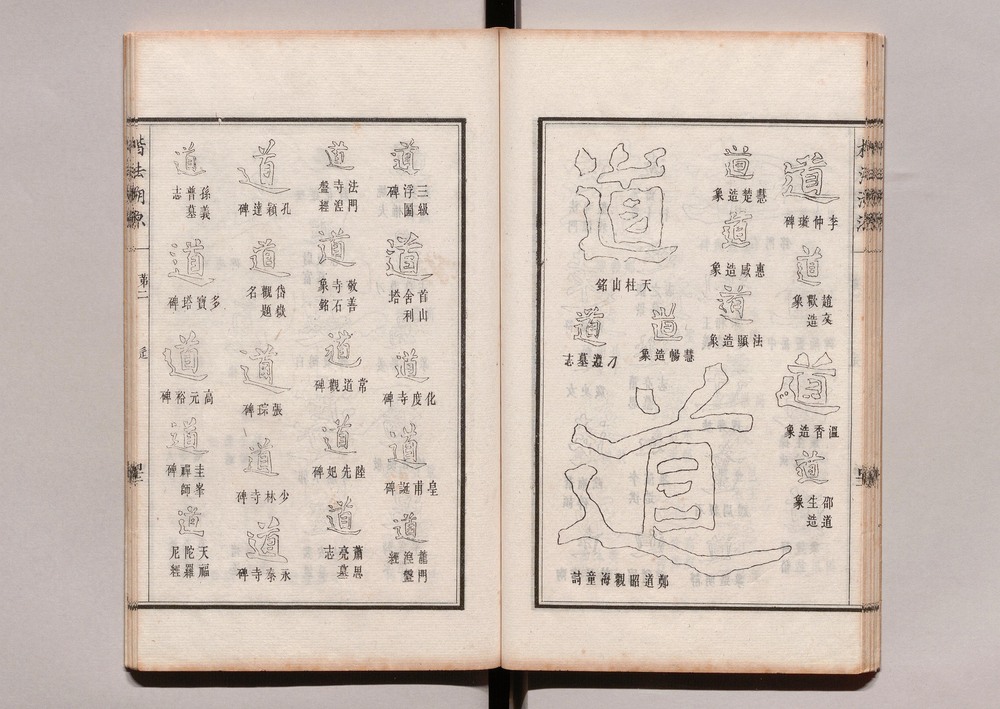 道
李仲璇碑
道
道
溫香造象
道
邵道生造象
道
慧楚造象
道
惠感造象
道
法顯造象
道
天柱山銘
道
慧暢造象
道
刁遵墓志
道
鄭道昭觀海童詩
道
三級浮圖碑
道
首山舍利塔
道
化度寺碑
道
皇甫誕碑
道
龍門湼盤經
道
法門寺湼盤經
道
敬善寺石象銘
道
常道觀碑
道
陸先妃碑
道
蕭思亮墓志
道
孔穎達碑
道
岱嶽觀題名
道
張琮碑
道
少林寺碑
道
永泰寺碑
道
孫義普墓志
道
多寶塔碑
道
高元裕碑
道
圭峯禪師碑
道
天福陀羅尼經
楷法溯源
弟二
辵